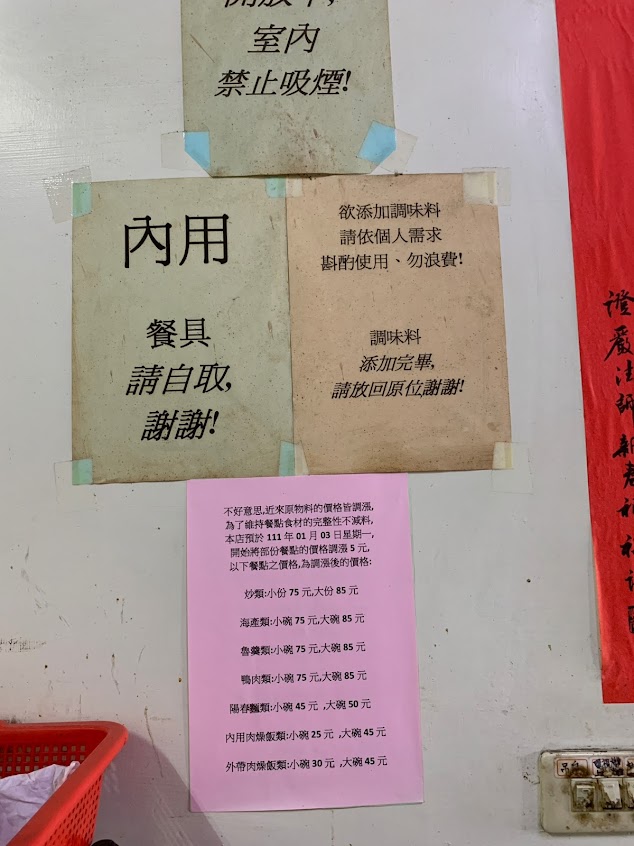 開放中,
室內
禁止吸煙!
內用
餐具
請自取,
謝謝!
欲添加調味料
請依個人需求
斟酌使用、勿浪費!
調味料
添加完畢,
請放回原位謝謝!
不好意思,近來原物料的價格皆調漲,
為了維持餐點食材的完整性不減料,
本店預於 111 年 01 月 03 日星期一,
開始將部份餐點的價格調漲 5 元,
以下餐點之價格,為調漲後的價格:
炒類:小份 75 元,大份 85 元
海產類:小碗 75 元,大碗 85 元
魯羹類:小碗 75 元,大碗 85 元
鴨肉類:小碗 75 元,大碗 85 元
陽春麵類:小碗 45 元 ,大碗 50 元
內用肉燥飯類:小碗 25 元 ,大碗 45 元
外帶肉燥飯類:小碗 30 元 ,大碗 45 元
證嚴法師新春祝福